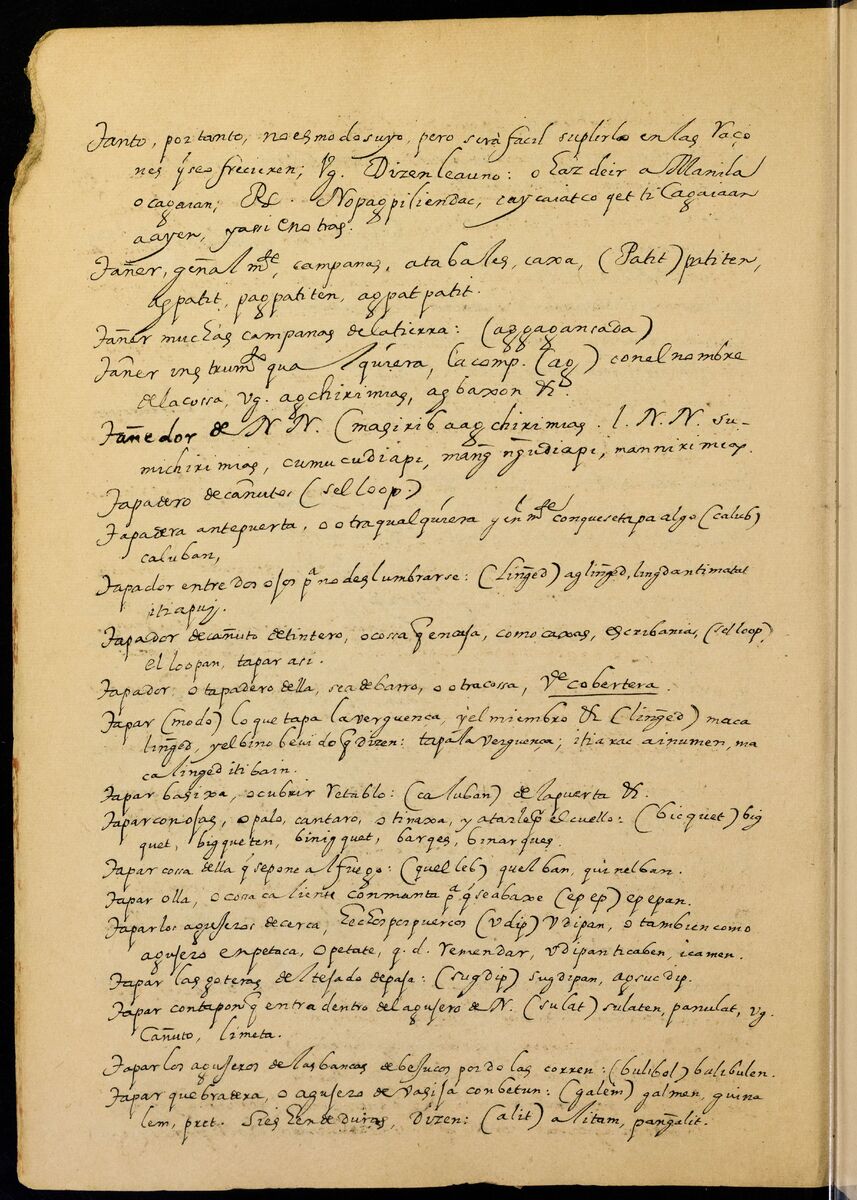 Tanto, por tanto, no es modo suyo, pero será facil suplirlo en las Raço
nes q̃ se ofrecieren; Vg. Dizenle a uno: o haz de ir a Manila
o cagaian; R. Nopagpiliendac, cay caiatco qet ti Cagaiaan
a ayen, y assi en otras.
Tañer, general mte, campanas, atabales, caxa, (Patit) patiten,
agpatit, pagpatiten, agpatpatit.
Tañer muchas campanas de la tierra: (aggagansada)
Tañer instrumto qual quiera, la comp. (ag) con el nombre
de la cossa, vg. agchirimias, agbaxon &.
Tañedor de N N. (masirib a agchirimias. l. N. N. su-
michirimias, cumucudiapi, mang̃ ng̃udiapi, mannirimias.
Tapadero de cañutos (selloop.)
Tapadera antepuerta, o otra qualquiera con que se tapa algo (calub)
caluban,
Tapador entre dos ojos pa no deslumbrarse: (Ling̃ed) agling̃ed, lingdantimatat
iti apuy.
Tapador de cañuto de tintero, o cossa q̃ encaja, como caxas, escribania, (selloop)
elloopan, tapar asi.
Tapador, o tapadero de lla, sea de barro, o otra cossa, Vde cobertera.
Tapar (modo) lo que tapa la verguenca, y el miembro & (ling̃ed) maca
ling̃ed, y el bino bevido q̃ dizen: tapa la verguenca; iti arac a inumen, ma
caling̃ed iti bain.
Tapar basixa, o cubrir retablo: (caluban) de la puerta &.
Tapar con ojas, o palo, cantaro, o tinaxa, y atarle el cuello: (bicquet) big
quet, bigqueten, binigquet, barqes, binarques.
Tapar cossa de lla q̃ se pone al fuego: (quelleb) quelban, quinelban.
Tapar olla, o cossa caliente con manta pa q̃ se abaxe (ep ep) epepan.
Tapar los agujeros de cerca, hechos por puercos (vdip) vdipan, o tambien como
agujero en petaca, o petate, q. d. remendar, vdipanticaben, icamen.
Tapar las goteras del tejado de paja: (sugdip) sugdipan, agsucdip.
Tapar con tapon q̃ entra dentro del agujero de N. (sulat) sulaten, panulat, vg.
Cañuto, limeta.
Tapar los agujeros de las bancas de bejucos por do las corren: (bulibol) balibulen.
Tapar quebradera, o agujero de vasija con betun: (galem) galmen, guina
lem, pret. Si es hendeduras, Dizen: (alit) alitam, pang̃alit.